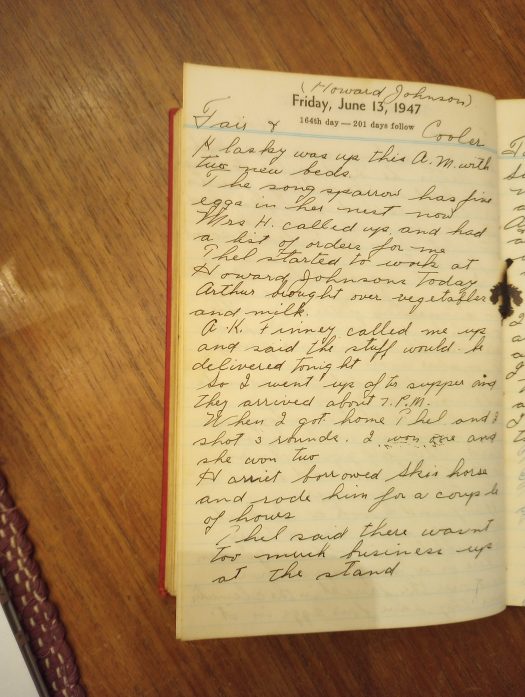 (Howard Johnson)
Friday, June 13, 1947
164th day — 201 days follow
Fair & Cooler
Hlasky was up this A.M. with
two new beds.
The song sparrow has five
eggs in her nest now
Mrs H. called up and had
a list of orders for me
Thel started to work at
Howard Johnsons today
Arthur brought over vegetables
and milk.
A. K. Finney called me up
and said the stuff would be
delivered tonight
So I went up aft supper and
they arrived about 7. P.M.
When I got home Thel and I
shot 3 rounds. I won one and
she won two
Harriet borrowed Skis horse
and rode him for a couple
of hours
Thel said there wasnt
too much business up
at the stand